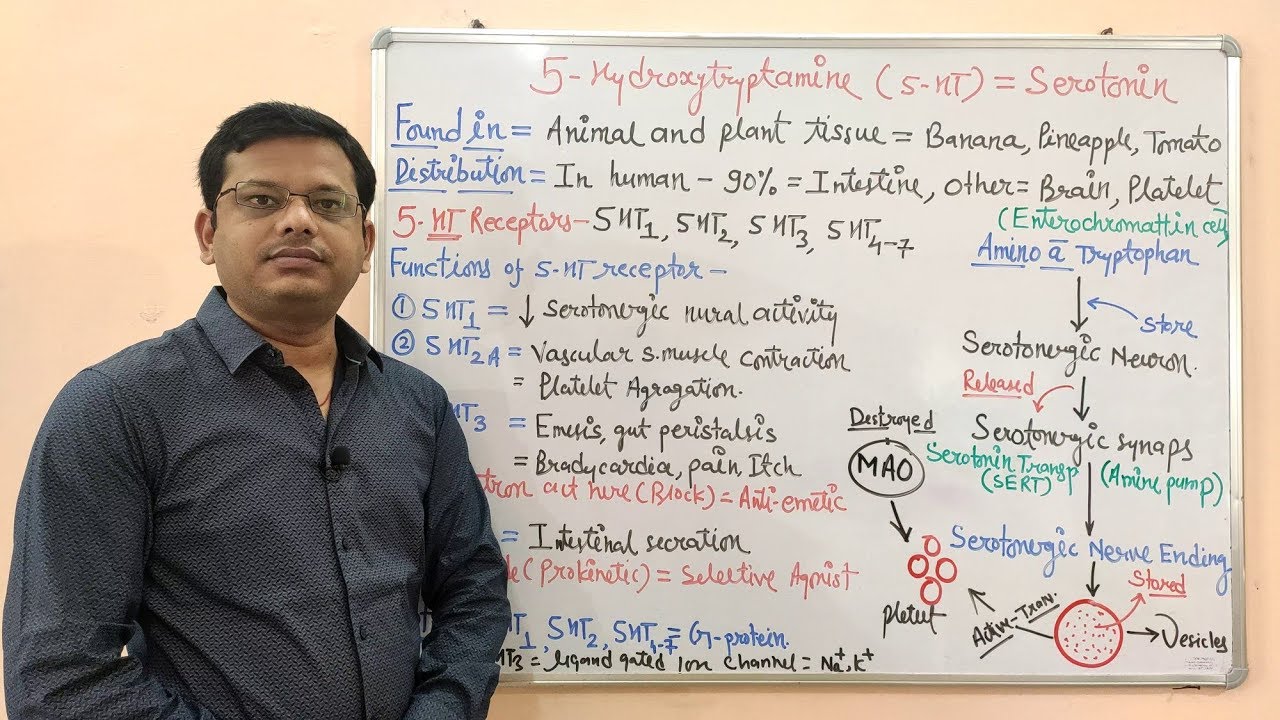 5-Hydroxytryptamine (5-HT) = Serotonin
Found in = Animal and plant tissue = Banana, Pineapple, Tomato
Distribution = In human - 90% = Intestine, other = Brain, Platelet
(Enterochromattin cell)
5-HT Receptors - 5HT1, 5HT2, 5HT3, 5HT4-7
Functions of 5-HT receptor -
① 5HT1 = ↓ Serotonergic nural activity
② 5HT2A = Vascular s.muscle contraction
= Platelet Agragation.
HT3 = Emesis, gut peristalsis
= Bradycardia, pain, Itch
tron act here (Block) = Anti-emetic
= Intestinal secration
de (Prokinetic) = Selective Agonist
HT1, 5HT2, 5HT4-7 = G-protein.
HT3 = ligand gated Ion channel = Na+, K+
Amino a Tryptophan
Store
Serotonergic Neuron.
Released
Serotonergic synaps
Serotonin Transp
(SERT)
(Amine pump)
Serotonergic Nerve Ending
Stored
Vesicles
Active-Tran.
Destroyed
MAO
pletet